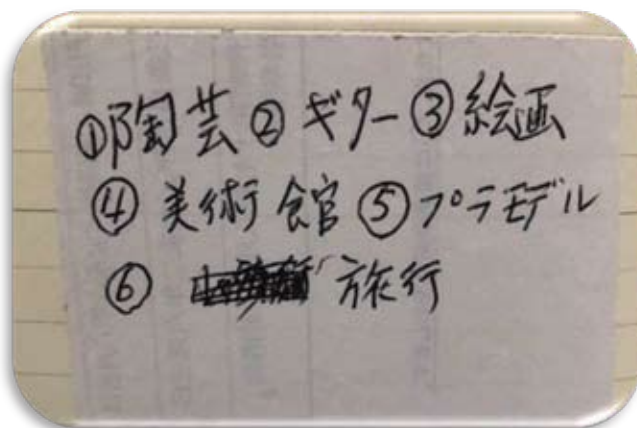 ①陶芸②ギター③絵画
④美術館⑤プラモデル
⑥旅行